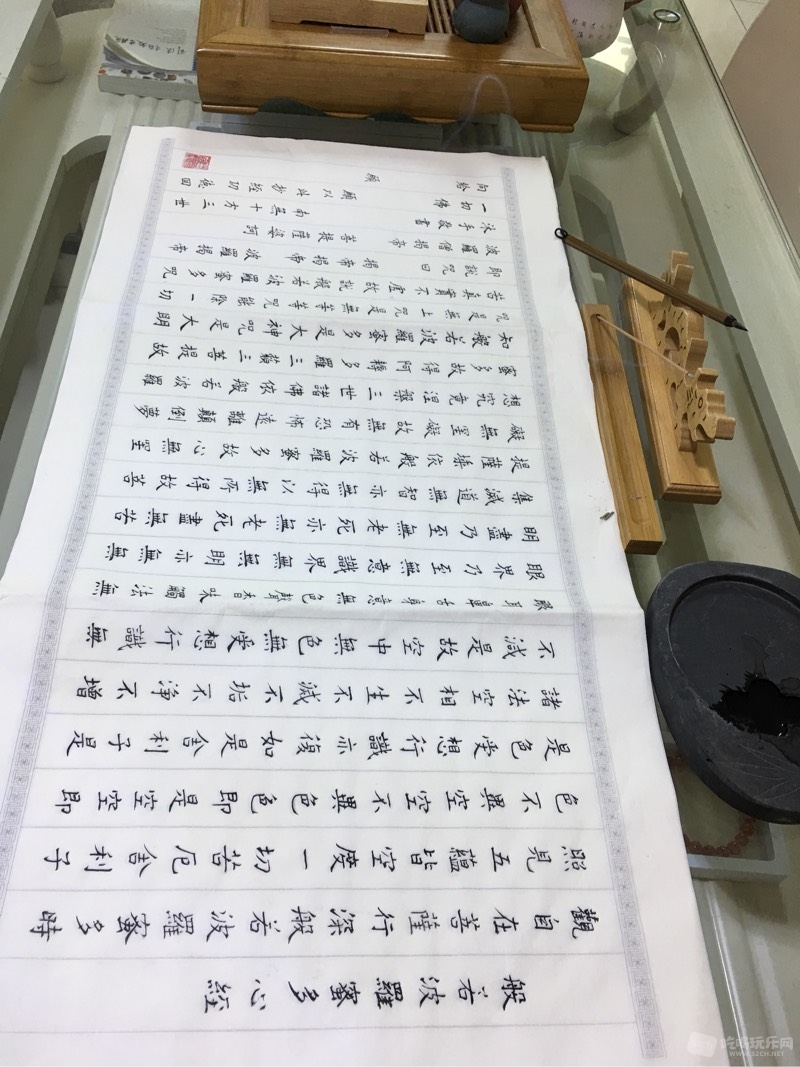 般若波羅蜜多心経
觀自在菩薩行深般若波羅蜜多時
照見五蘊皆空度一切苦厄舍利子
色不異空空不異色色即是空空即
是色受想行識亦復如是舍利子是
諸法空相不生不滅不垢不淨不增
不減是故空中無色無受想行識無
眼耳鼻舌身意無色聲香味觸法無
眼界乃至無意識界無無明亦無無
明盡乃至無老死亦無老死盡無苦
集滅道無智亦無得以無所得故菩
提薩埵依般若波羅蜜多故心無罣
礙無罣礙故無有恐怖遠離顛倒夢
想究竟涅槃三世諸佛依般若波羅
蜜多故得阿耨多羅三藐三菩提故
知般若波羅蜜多是大神咒是大明
咒是無上咒是無等等咒能除一切
苦真實不虛故說般若波羅蜜多咒
即說咒曰 揭帝揭帝 波羅揭帝
波羅僧揭帝 菩提薩婆訶
沐手敬書 南無十方三世
一切佛 願以此抄経功德回
向給 願
吃喝玩乐网
WWW.52CH.NET